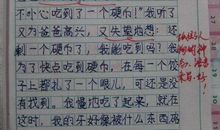 不小心吃到了一个硬币!"我听了
又为爸爸高兴,又失望地想:还
剩一个硬币了!我能吃到吗?我
为了快点吃到硬币,在每一个饺
子上都扎了一个眼儿,可还是没
有找到。我慢慢地吃了起来,就在
这时,我的牙好像被什么东西硌